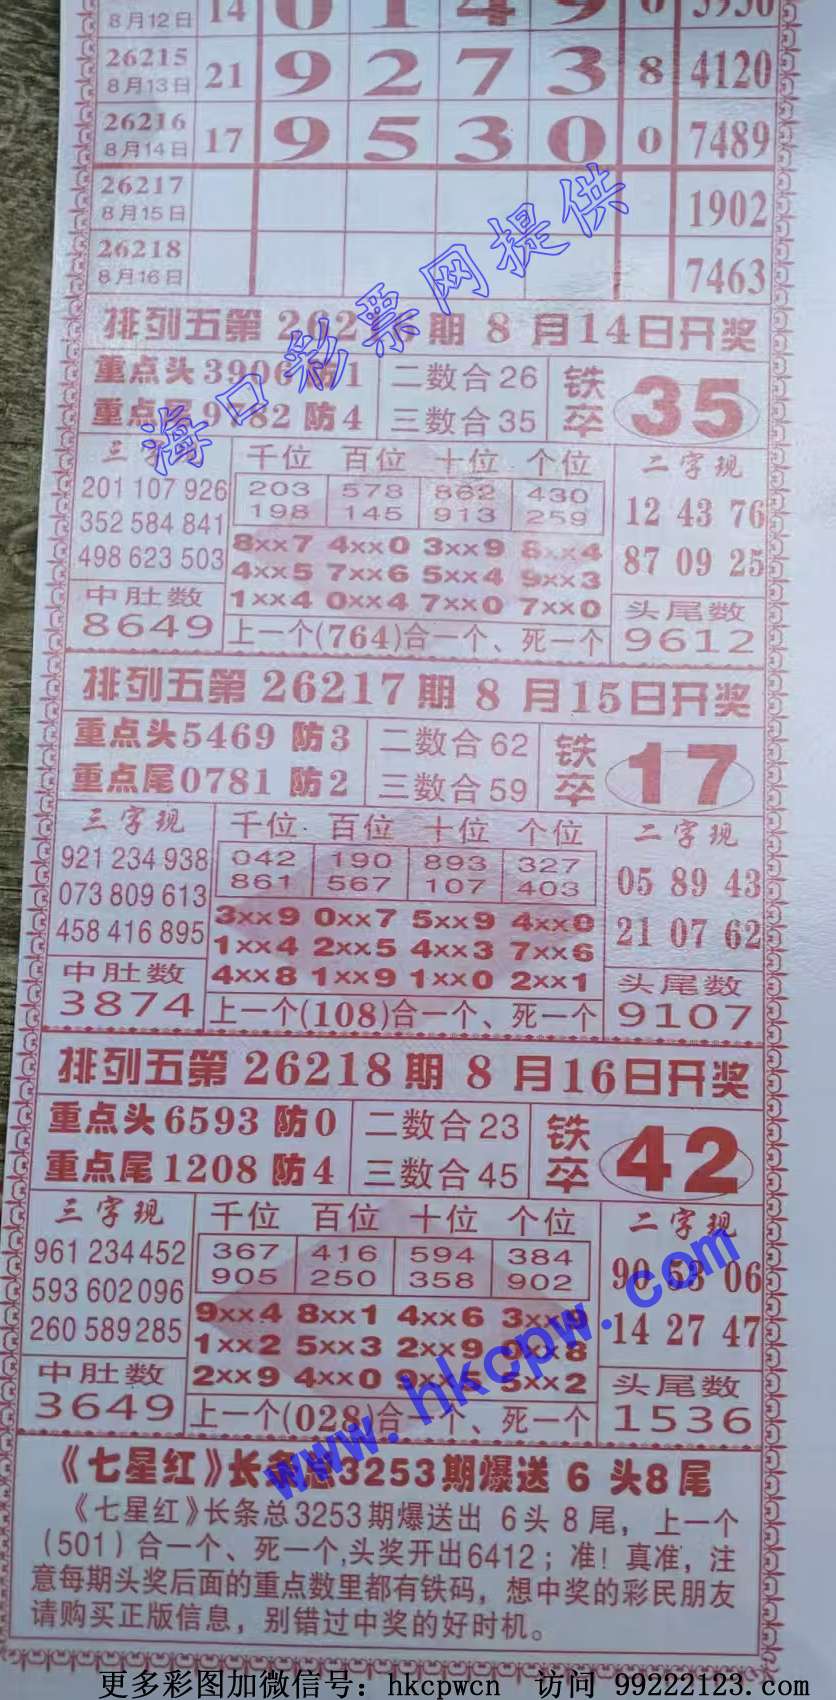 8月12日 14 0 1 4 9 0 3950
26215
8月13日 21 9 2 7 3 8 4120
26216
8月14日 17 9 5 3 0 0 7489
26217
8月15日 1902
26218
8月16日 7463
海口彩票网提供
排列五第 期 8 月14日开奖
重点头3906防1 二数合26 铁卒 35
重点尾9782防4 三数合35
三字 千位 百位 十位 个位 二字现
201 107 926 203 578 862 430
352 584 841 198 145 913 259 12 43 76
498 623 503 8xx7 4xx0 3xx9 8xx4 87 09 25
4xx5 7xx6 5xx4 9xx3
中肚数 1xx4 0xx4 7xx0 7xx0 头尾数
8649 上一个(764)合一个、死一个 9612
排列五第 26217 期 8 月15日开奖
重点头5469 防3 二数合62 铁卒 17
重点尾0781 防2 三数合59
三字现 千位 百位 十位 个位 二字现
921 234 938 042 190 893 327
073 809 613 861 567 107 403 05 89 43
458 416 895 3xx9 0xx7 5xx9 4xx0 21 07 62
1xx4 2xx5 4xx3 7xx6
中肚数 4xx8 1xx9 1xx0 2xx1 头尾数
3874 上一个(108)合一个、死一个 9107
排列五第 26218 期 8 月16日开奖
重点头6593 防0 二数合23 铁卒 42
重点尾1208 防4 三数合45
三字现 千位 百位 十位 个位 二字现
961 234 452 367 416 594 384
593 602 096 905 250 358 902 90 53 06
260 589 285 9xx4 8xx1 4xx6 3xx9 14 27 47
1xx2 5xx3 2xx9 9xx8
中肚数 2xx9 4xx0 9xx5 5xx2 头尾数
3649 上一个(028)合一个、死一个 1536
www.hkcpw.com
《七星红》长条总3253期爆送 6 头8尾
《七星红》长条总3253期爆送出 6头8尾，上一个
(501)合一个、死一个,头奖开出6412；准！真准，注
意每期头奖后面的重点数里都有铁码，想中奖的彩民朋友
请购买正版信息，别错过中奖的好时机。
更多彩图加微信号：hkcpwcn 访问 99222123.com